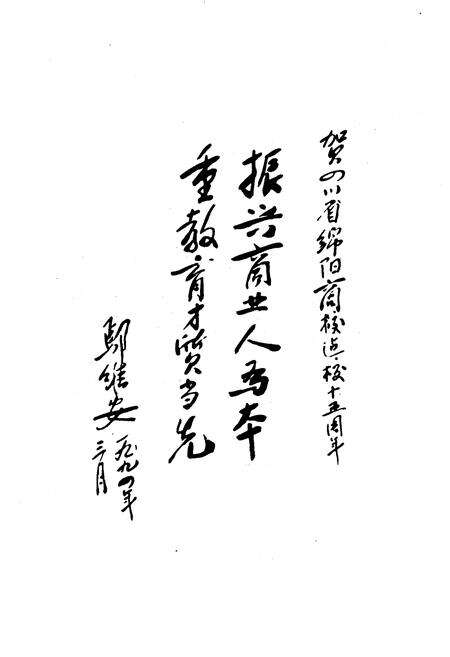 贺四川省绵阳商校建校十五周年
振兴商业人为本
重教育才质当先
邬维安
一九九四年
三月